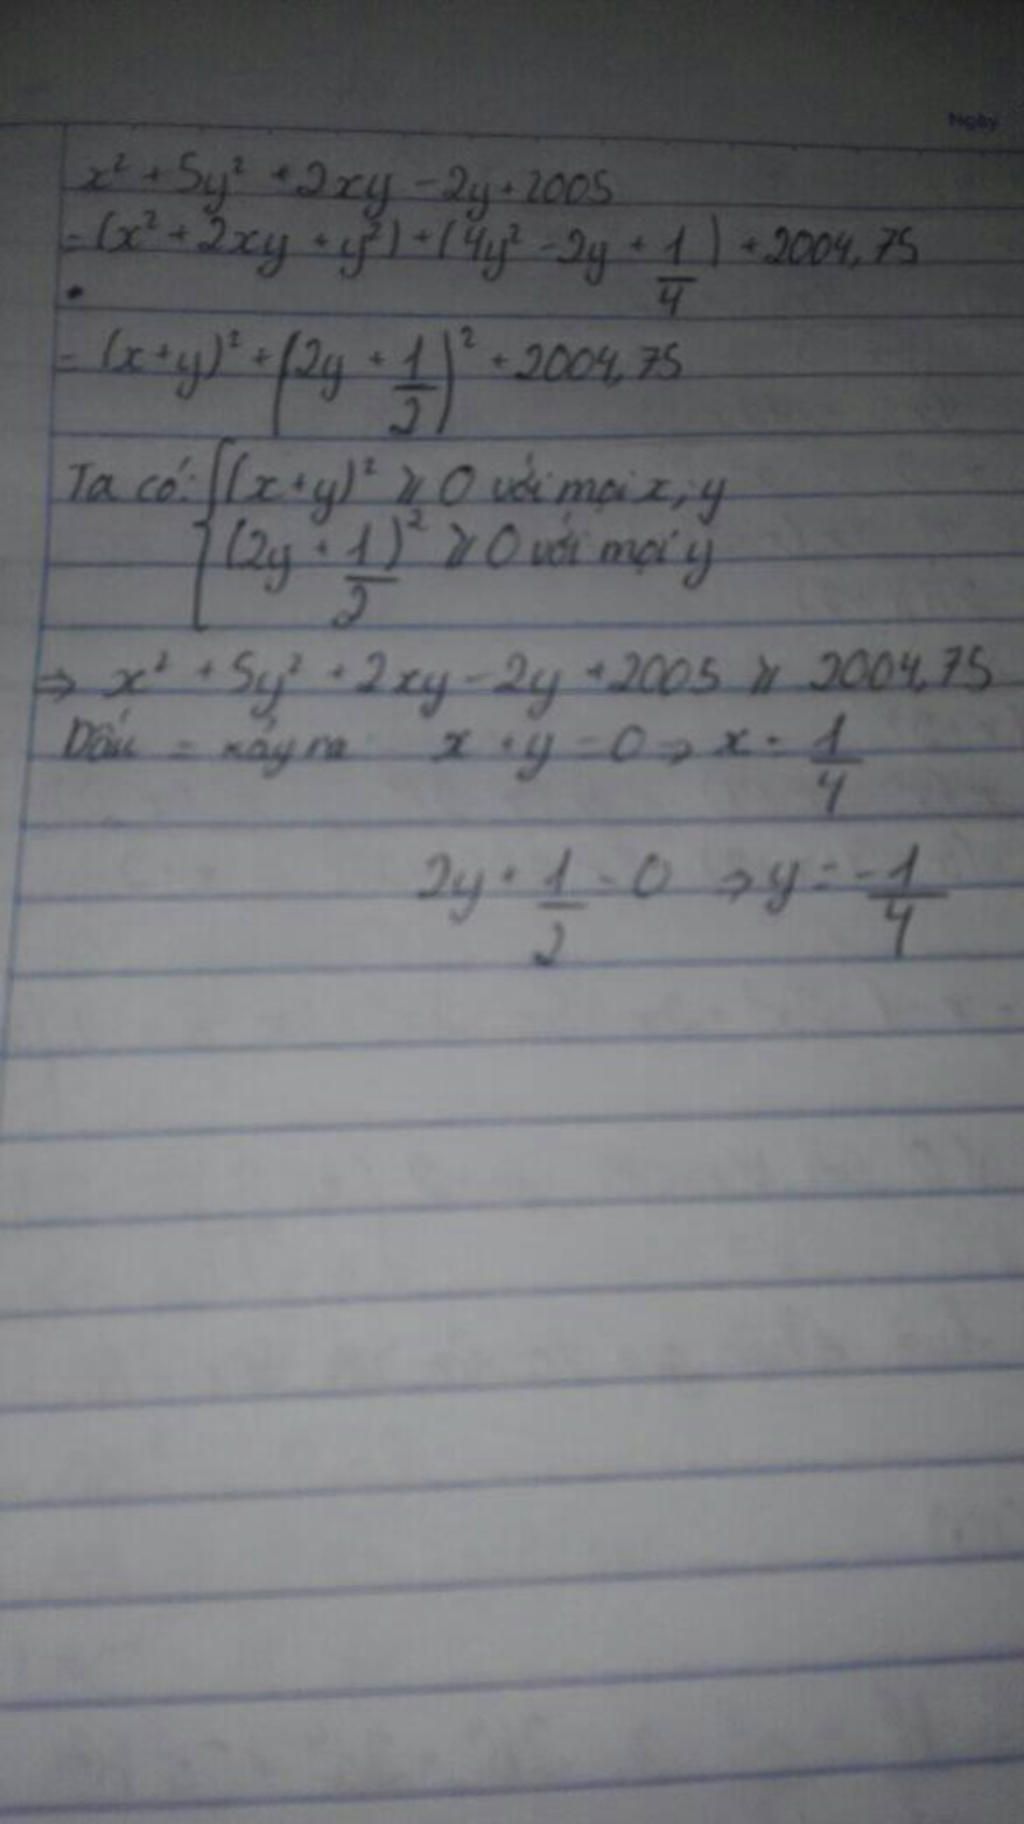 Ngày
x² + 5y² + 2xy - 2y + 2005
= (x² + 2xy + y²) + (4y² - 2y + 1/4) + 2004,75
= (x+y)² + (2y + 1/2)² + 2004,75
Ta có: { (x+y)² ≥ 0 với mọi x, y
(2y + 1/2)² ≥ 0 với mọi y
⇒ x² + 5y² + 2xy - 2y + 2005 ≥ 2004,75
Dấu = xảy ra x + y = 0 ⇒ x = 1/4
2y + 1/2 = 0 ⇒ y = -1/4